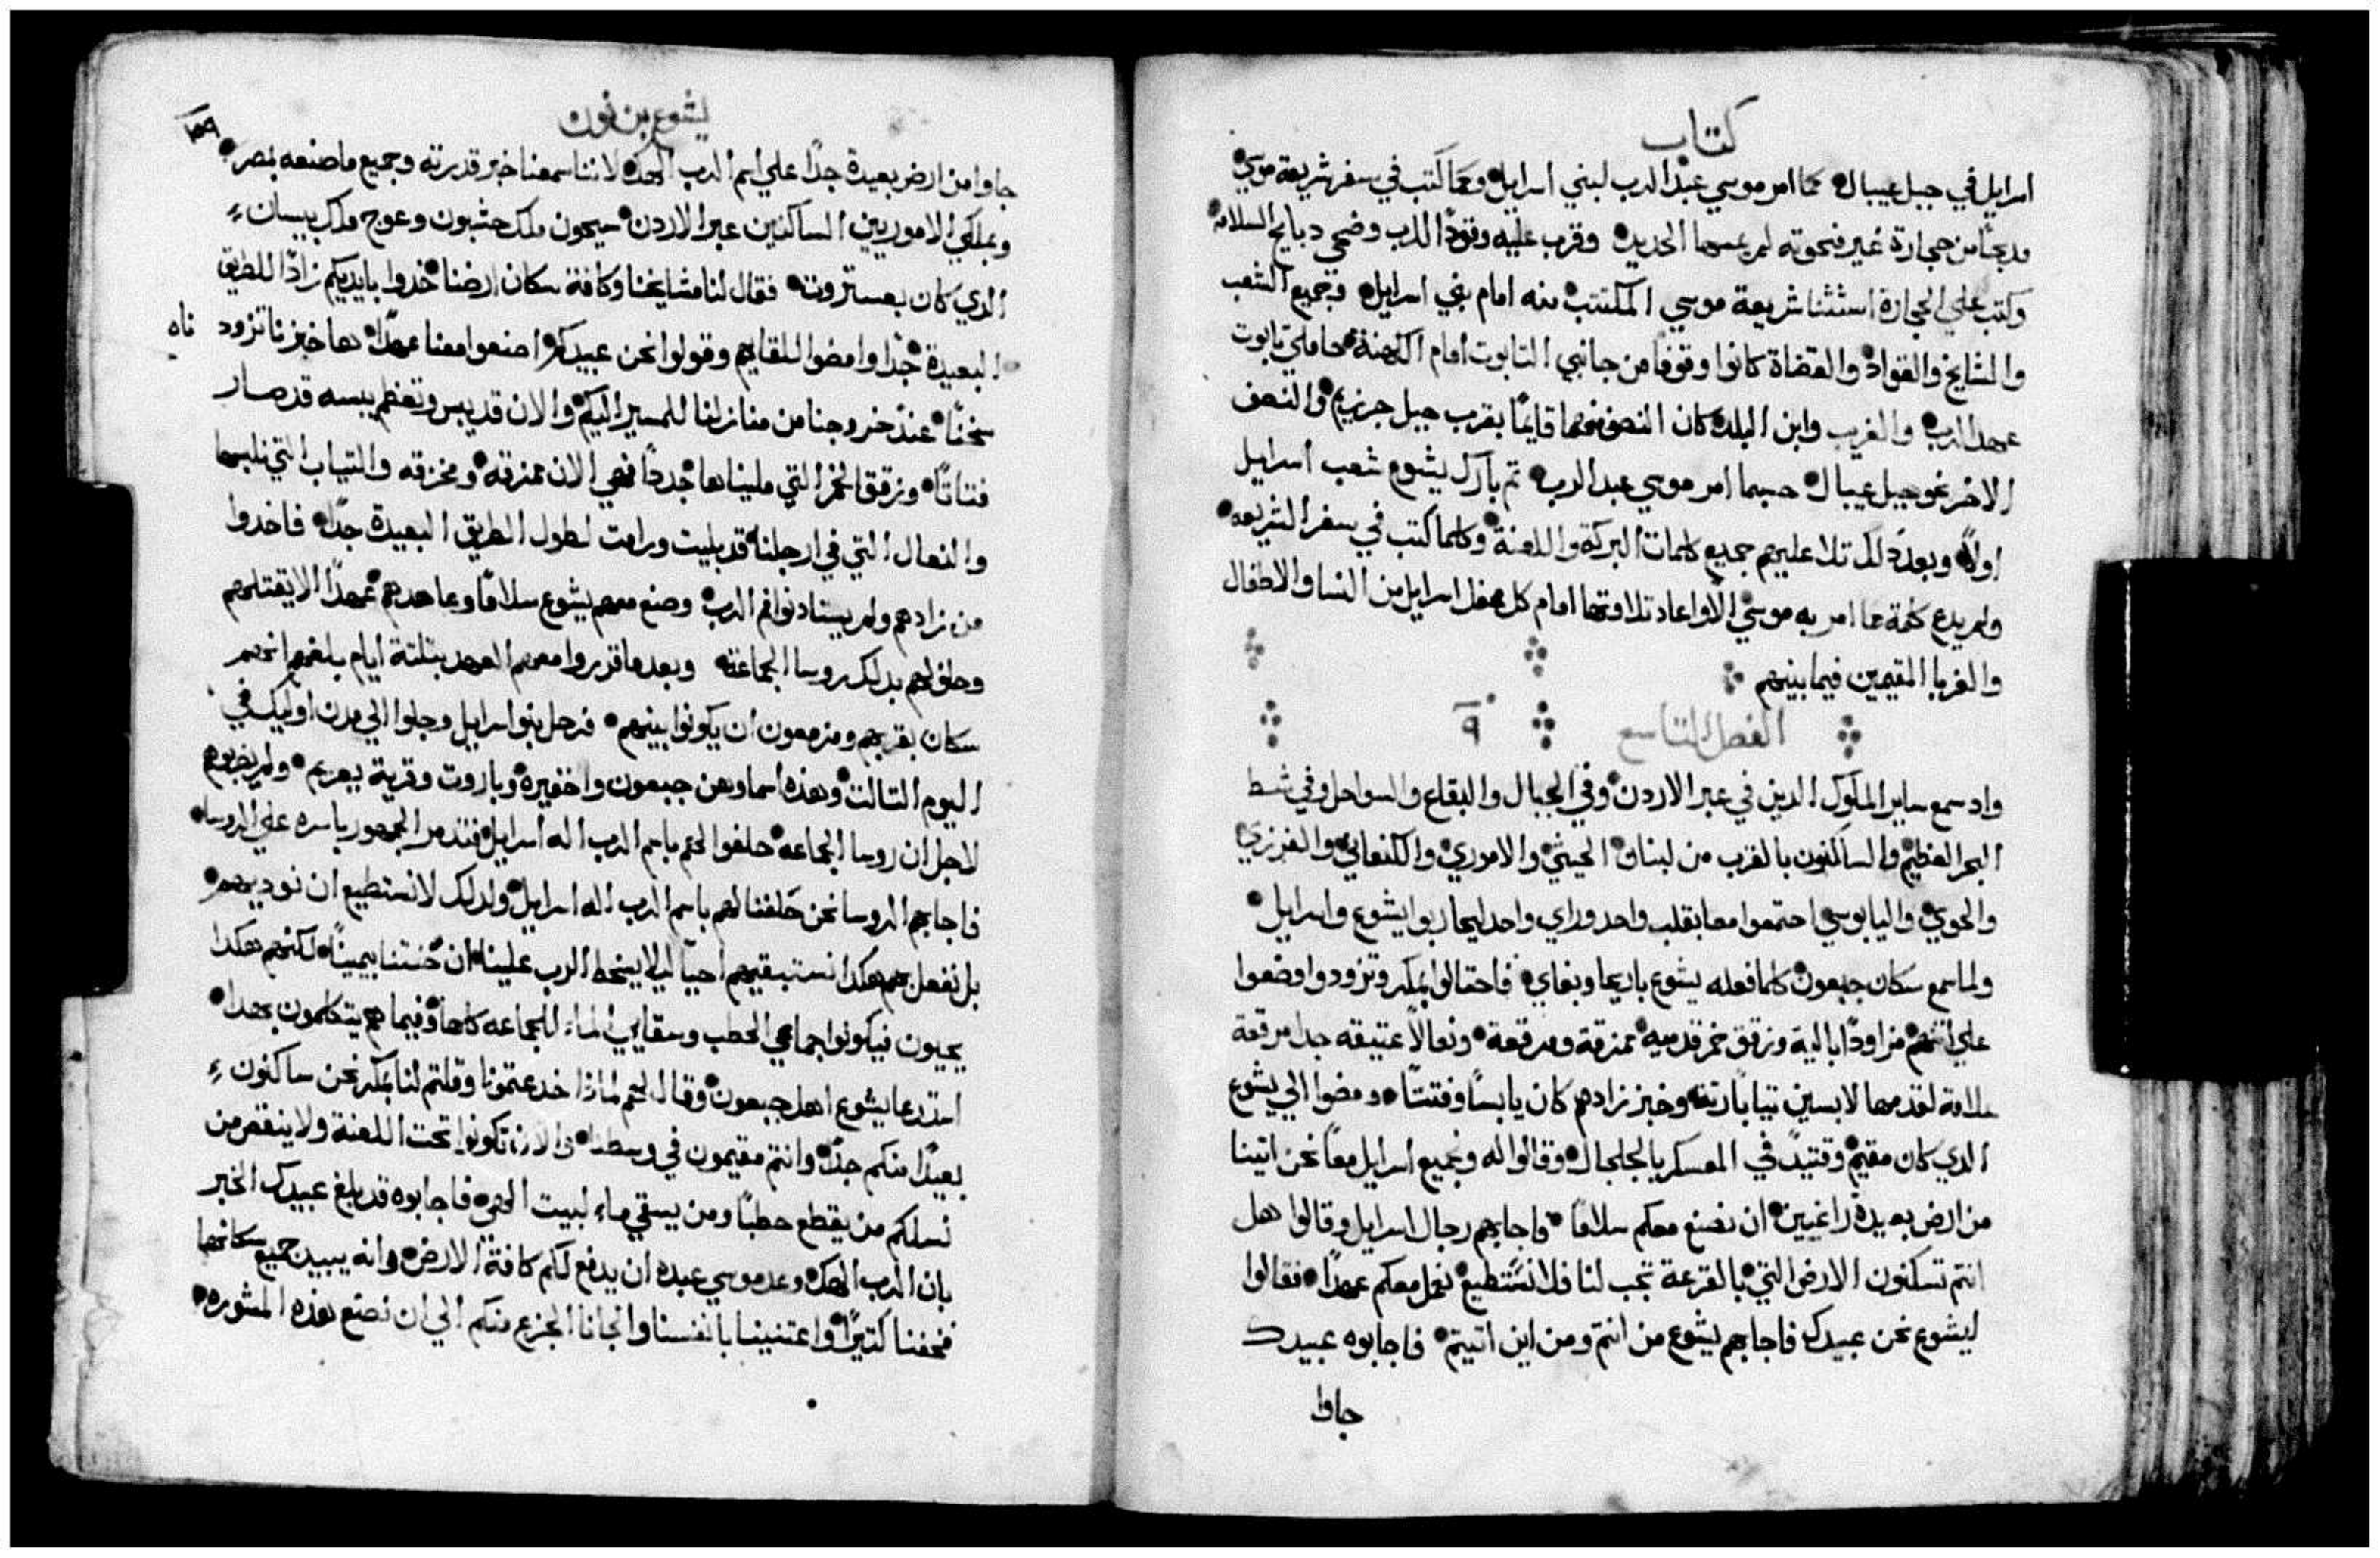 كتاب
اسرايل في جبل عيبال كما امر موسي عبد الرب لبني اسرايل وكما كتب في سفر شريعة موسي
مدبحًا من حجارة غير منحوته لم يمسها الحديد وقرب عليه وقودًا للرب وضحي دبايح السلامه
وكتب علي الحجارة استثنا شريعة موسي المكتتب منه امام بني اسرايل وجميع الشعب
والمشايخ والقواد والقضاة كانوا وقوفًا من جانبي التابوت امام الكهنة حاملي تابوت
عهد الرب والغريب وابن البلد كان النصف منهما قايمًا بقرب جبل جرزيم والنصف
الاخر نحو جبل عيبال حسبما امر موسي عبد الرب تم بارك يشوع شعب اسرايل
اولاً وبعد دلك تلا عليهم جميع كلمات البركة واللعنة وكلما كتب في سفر الشريعه
ولم يدع كلمة مما امر به موسي الا واعاد تلاوتها امام كل محفل اسرايل من النسا والاطفال
والغربا المقيمين فيما بينهم
الفصل التاسع ٩
واد سمع ساير الملوك الدين في عبر الاردن وفي الجبال والبقاع والسواحل وفي شط
البحر العظيم والساكنون بالقرب من لبنان الحيثي والاموري والكنعاني والفرزي
والحوي واليابوسي اجتمعوا معا بقلب واحد وراي واحد ليحاربوا يشوع واسرايل
ولما سمع سكان جبعون كلما فعله يشوع باريحا وبعاي فاحتالوا بمكر وتزودوا وضعوا
علي اتنهم مزاودًا بالية وزقق خمر قدميه ممزقة ومرقعة ونعالاً عتيقه جدا مرقعة
علامة لقدمها لابسين تيابًا رته وخبز زادهم كان يابسًا ومفتتًا ومضوا الي يشوع
الدي كان مقيم وقتيدً في المعسكر بالجلجال وقالوا له ولجميع اسرايل معاً نحن اتينا
من ارض بعيدة راغبين ان نصنع معكم سلامًا فاجابهم رجال اسرايل وقالوا هل
انتم تسكنون الارض التي بالقرعة تجب لنا فلا نستطيع نعمل معكم عهدًا فقالوا
ليشوع نحن عبيدك فاجابهم يشوع من انتم ومن اين اتيتم فاجابوه عبيدك
جاوا
يشوع بن نون
١٥٩
جاوا من ارض بعيدة جدًا علي اسم الرب الهك لاننا سمعنا خبر قدرته وجميع ما صنعه بمصر
وبملكي الاموريين الساكنين عبر الاردن سيحون ملك حشبون وعوج ملك بيسان
الدي كان بعستروت فقال لنا مشايخنا وكافة سكان ارضنا خدوا بايديكم زادًا للطريق
البعيدة جدًا وامضوا للقايهم وقولوا نحن عبيدكم اصنعوا معنا عهدًا ها خبزنا تزودناه
سخنًا عند خروجنا من منازلنا للمسير اليكم والان قد يبس ولعظم يبسه قد صار
فتاتًا وزقق الخمر التي مليناها جددًا فهي الان ممزقه ومخزقه والتياب التي نلبسها
والنعال التي في ارجلنا قد بليت ورامت لطول الطريق البعيدة جدًا فاخدوا
من زادهم ولم يستادنوا فم الرب وصنع معهم يشوع سلامًا وعاهدهم عهدًا الا يقتلهم
وحلف لهم بدلك روسا الجماعة وبعدما قرروا معهم العهد بتلتة ايام بلغهم انهم
سكان بقربهم ومزمعون ان يكونوا بينهم فرحل بنو اسرايل وجاوا الي مدن اوليك في
اليوم التالت وهذه اسماوهن جبعون واخفيره وباروت وقرية يعريم ولم يضربوهم
لاجل ان روسا الجماعه حلفوا لهم باسم الرب اله اسرايل فتدمر الجمهور باسره علي الروسا
فاجابهم الروسا نحن حلفنا لهم باسم الرب اله اسرايل ولدلك لا نستطيع ان نوديهم
بل نفعل بهم هكدا نستبقيهم احيا ليلا يسخط الرب علينا ان حنتنا بيميننا لكنهم هكدا
يحيون فيكونوا جماعي الحطب وسقايي الماء للجماعه كلها وفيما هم يتكلمون بهدا
استدعا يشوع اهل جبعون وقال لهم لماذا خدعتمونا وقلتم لنا بمكر نحن ساكنون
بعيدًا منكم جدًا وانتم مقيمون في وسطنا والان تكونوا تحت اللعنة ولا ينقص من
نسلكم من يقطع حطبًا ومن يسقي ماء لبيت الهي فاجابوه قد بلغ عبيدك الخبر
بان الرب الهك وعد موسي عبده ان يدفع لكم كافة الارض وانه يبيد جميع سكانها
فخفنا كتيرًا واعتنينا بانفسنا والجانا الجزع منكم الي ان نصنع هذه المشوره